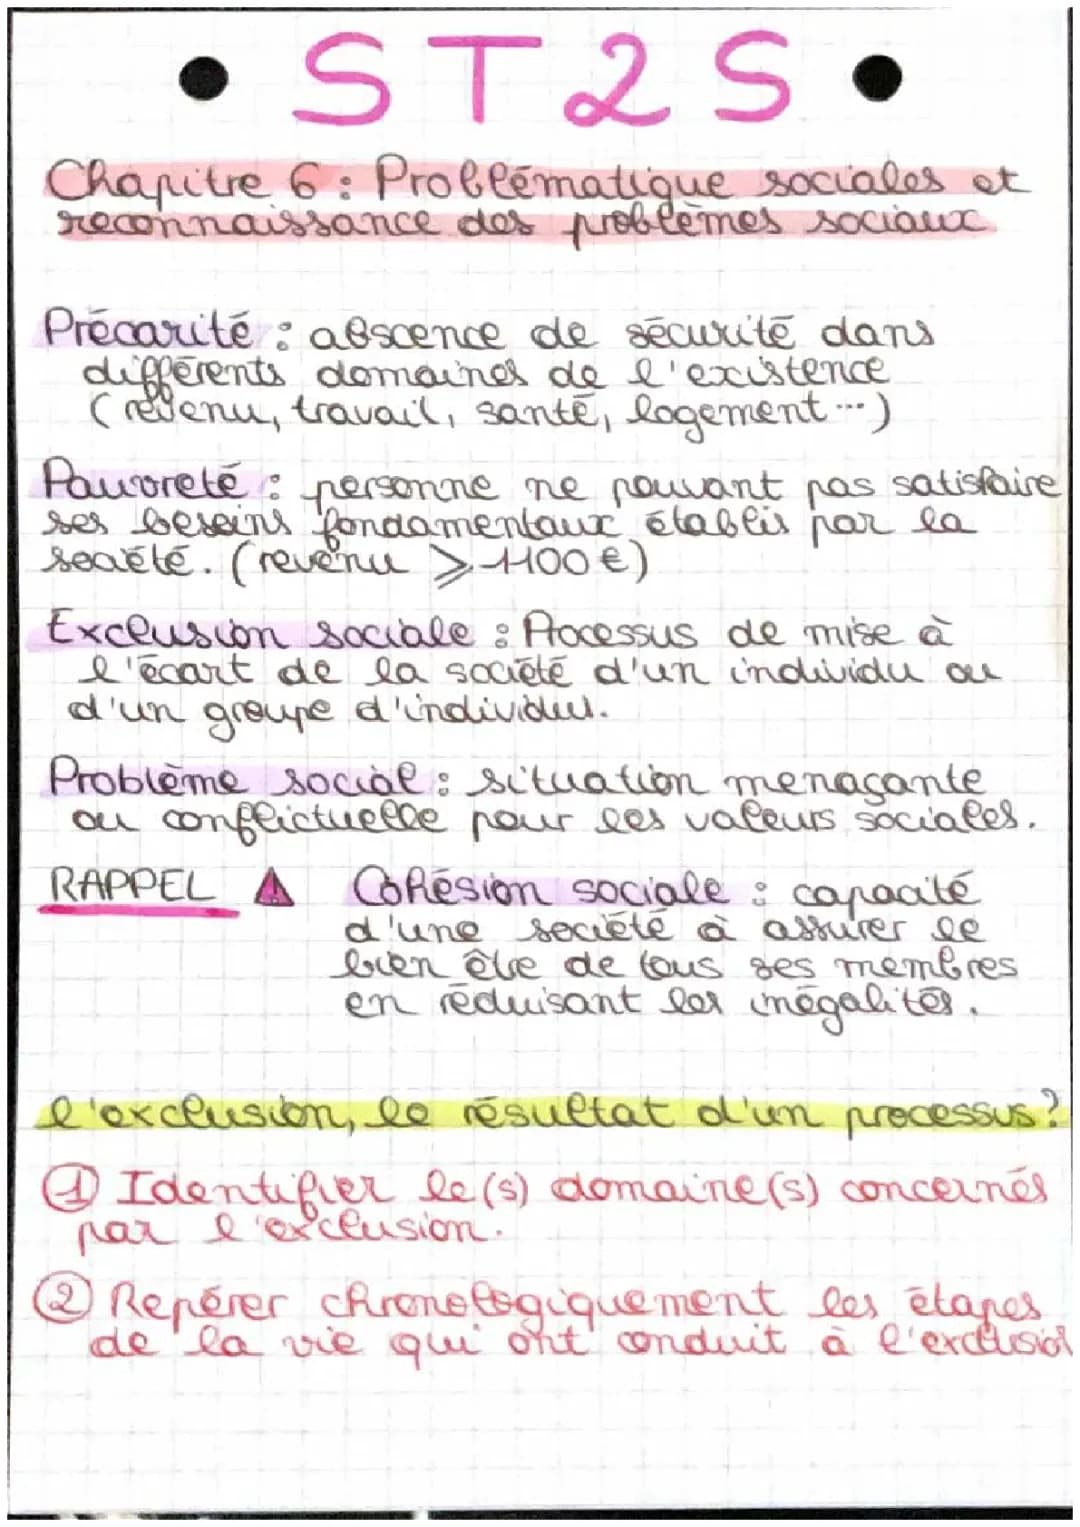 • ST2S •
Chapitre 6 : Problématique sociales et
reconnaissance des problèmes sociaux
Précarité : abscence de sécurité dans
différents domaines de l'existence
(revenu, travail, santé, logement...)
Pauvreté : personne ne pouvant pas satisfaire
ses besoins fondamentaux établis par la
société. (revenu ⩾ 1100 €)
Exclusion sociale : Processus de mise à
l'écart de la société d'un individu ou
d'un groupe d'individu.
Problème social : situation menaçante
ou conflictuelle pour les valeurs sociales.
RAPPEL Cohésion sociale : capacité
d'une société à assurer le
bien être de tous ses membres
en réduisant les inégalités.
l'exclusion, le résultat d'un processus ?
① Identifier le(s) domaine(s) concernés
par l'exclusion.
② Repérer chronologiquement les étapes
de la vie qui ont conduit à l'exclusion